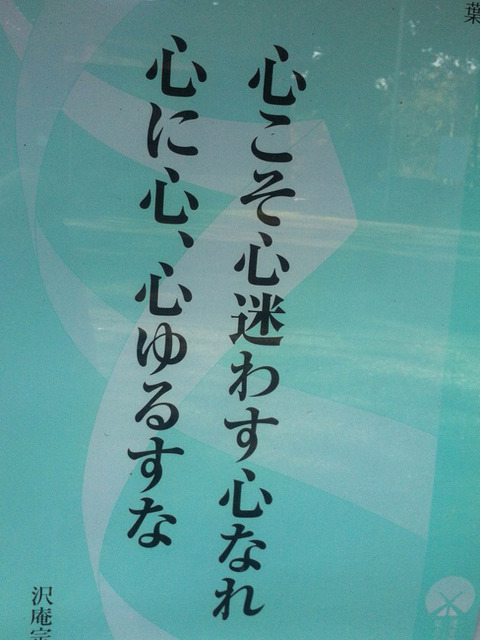 葉
心こそ心迷わす心なれ
心に心、心ゆるすな
沢庵宗